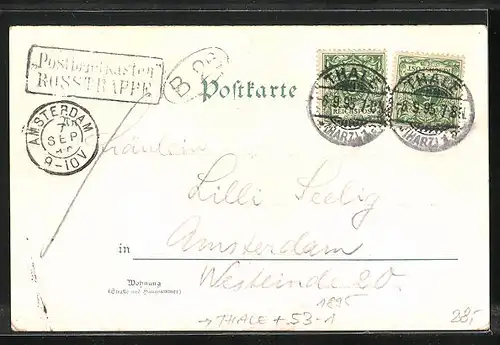 "Postbriefkasten"
ROSSTRAPPE
Postkarte
THALE
6.9.95.7-8N.
(HARZ)
THALE
6.9.95.7-8N.
(HARZ)
AMSTERDAM
7
SEP
9-10V
Fräulein
Lilli Seelig
in Amsterdam
Westeinde 20.
Wohnung
(Straße und Hausnummer)
1895
→ THALE + 53-1
28,-